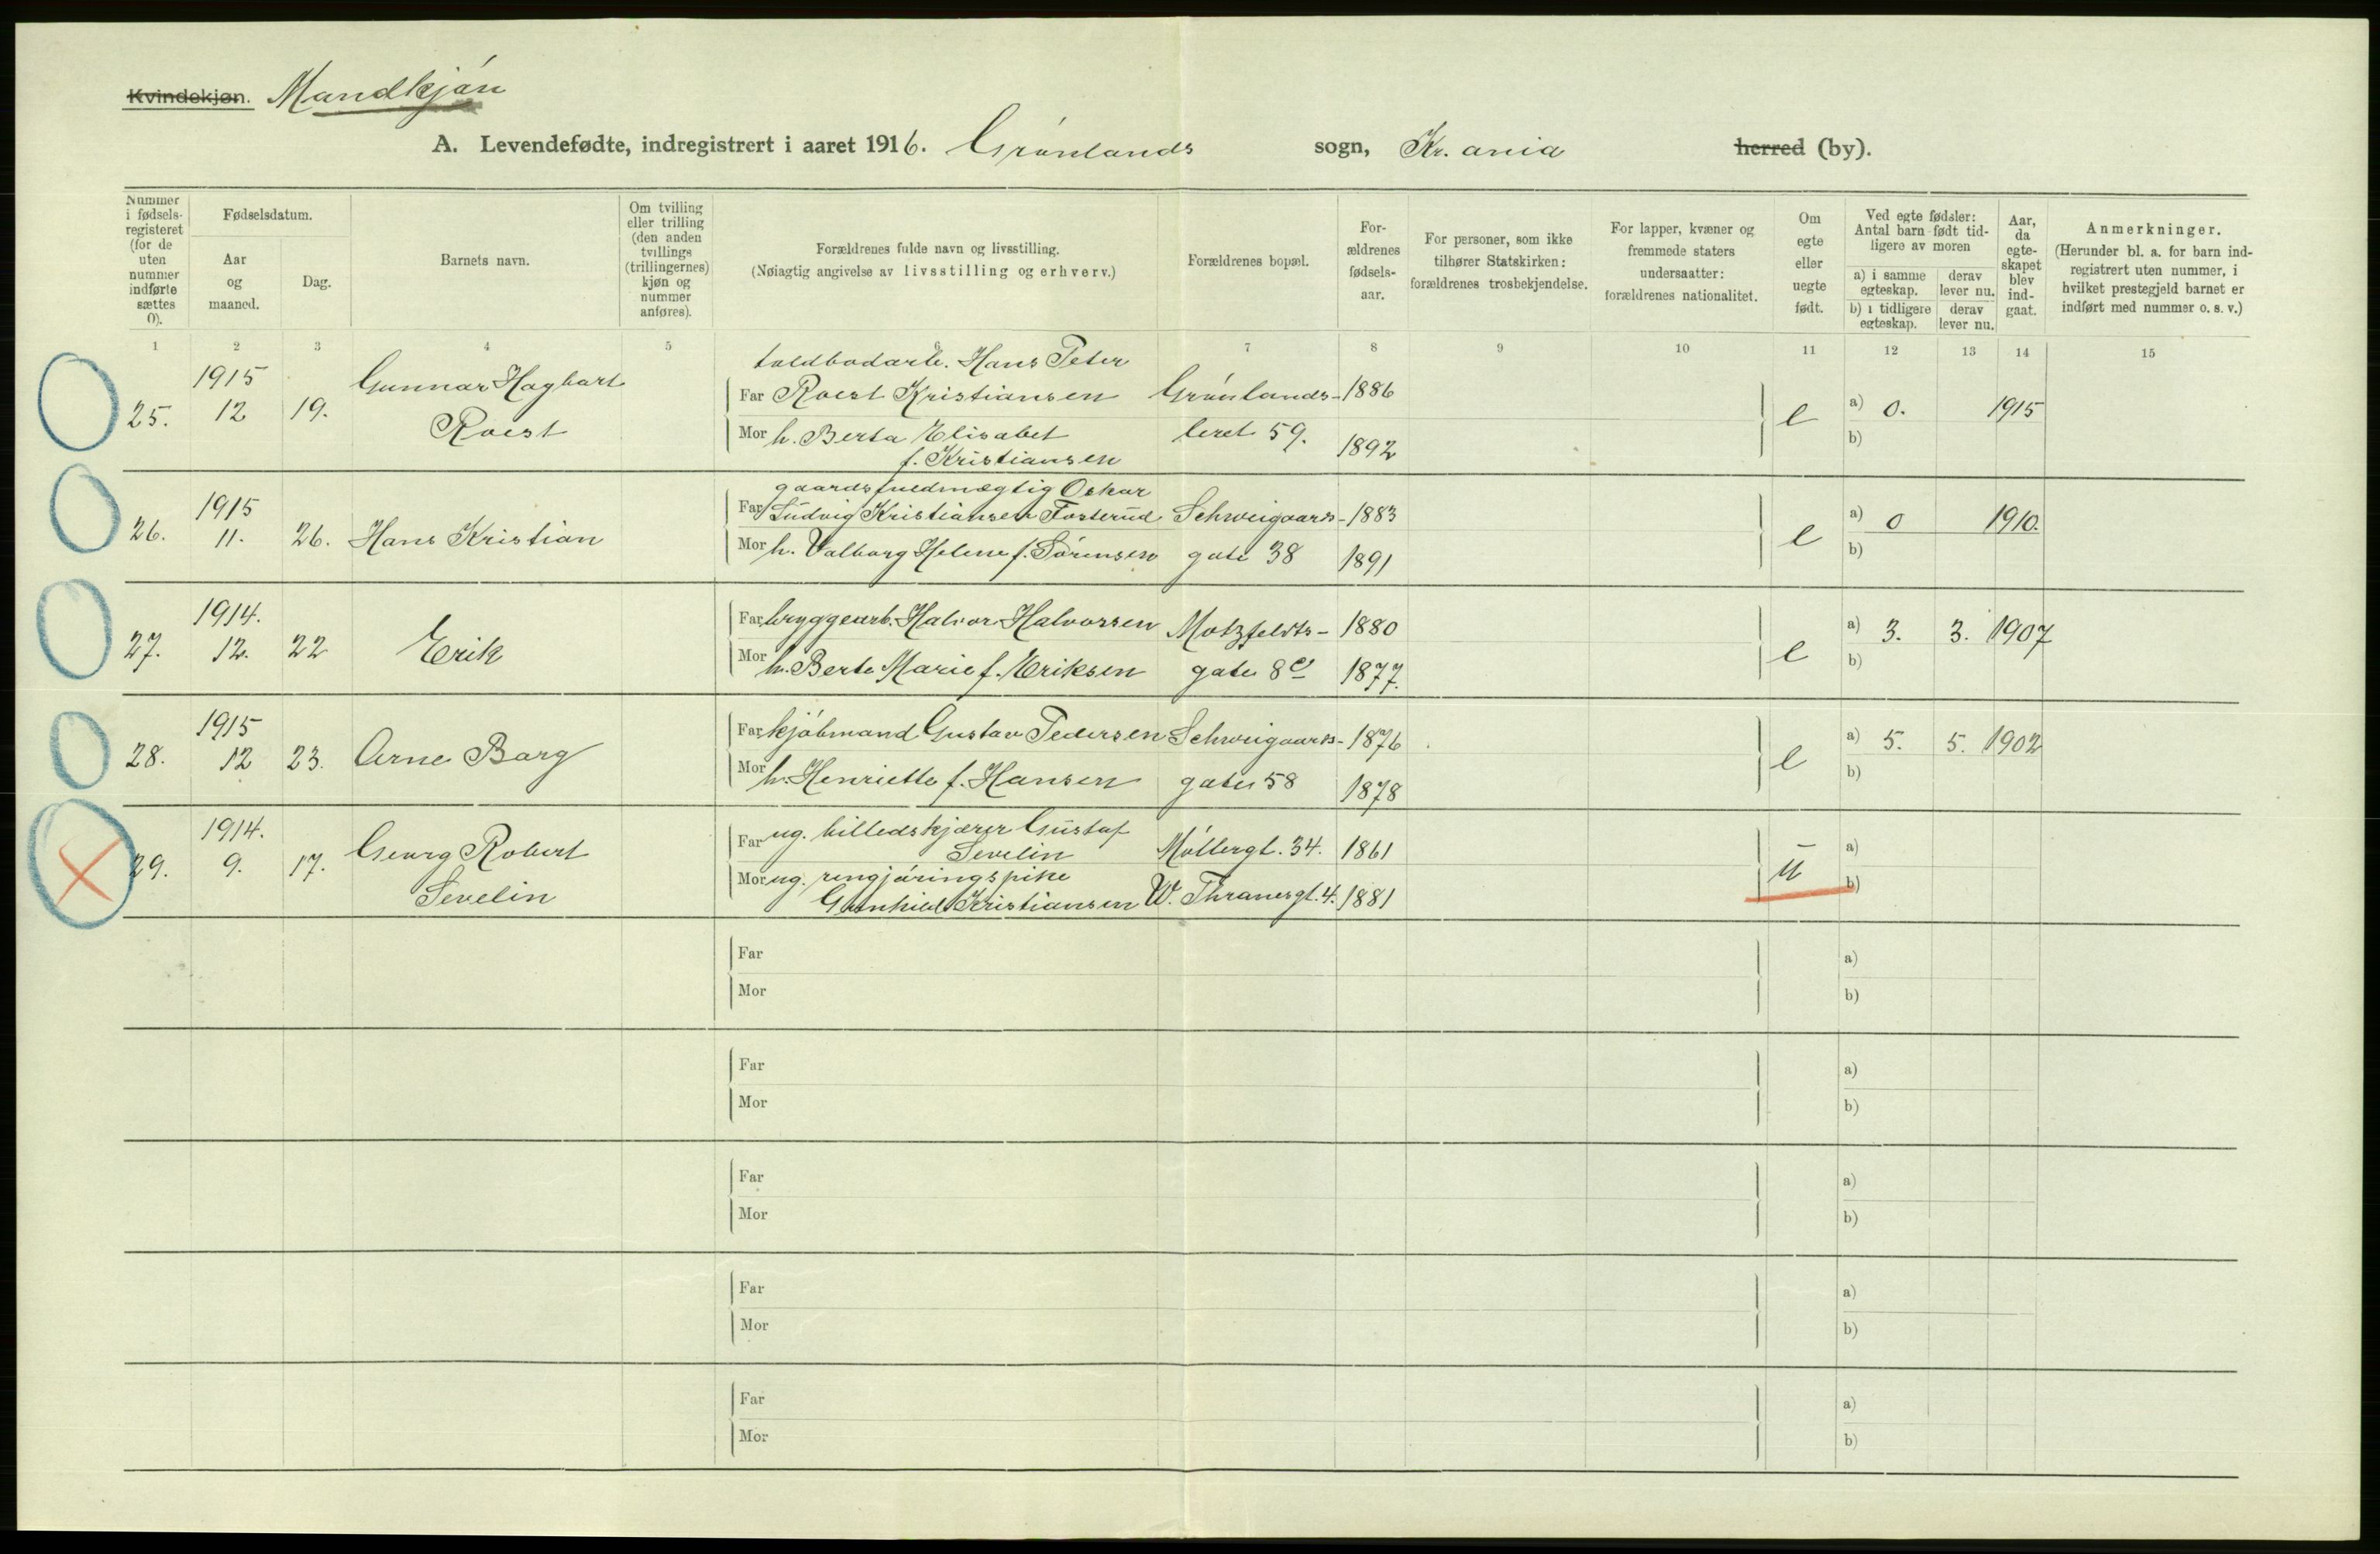 Kvindekjøn. Mandkjøn
A. Levendefødte, indregistrert i aaret 1916. Grønlands sogn, Kr.ania herred (by).
Nummer i fødsels-registeret (for de uten nummer indførte sættes 0).
Fødselsdatum.
Aar og maaned.
Dag.
Barnets navn.
Om tvilling eller trilling (den anden tvillings (trillingernes) kjøn og nummer anføres).
Forældrenes fulde navn og livsstilling.
(Nøiagtig angivelse av livsstilling og erhverv.)
Forældrenes bopæl.
For-ældrenes fødsels-aar.
For personer, som ikke tilhører Statskirken: forældrenes trosbekjendelse.
For lapper, kvæner og fremmede staters undersaatter: forældrenes nationalitet.
Om egte eller uegte født.
Ved egte fødsler: Antal barn født tid-ligere av moren
a) i samme egteskap.
derav lever nu.
b) i tidligere egteskap.
derav lever nu.
Aar, da egte-skapet blev ind-gaat.
Anmerkninger.
(Herunder bl. a. for barn ind-registrert uten nummer, i hvilket prestegjeld barnet er indført med nummer o. s. v.)
1 2 3 4 5 6 7 8 9 10 11 12 13 14 15
toldbodarb. Hans Peter
1915 Gunnar Hagbart
Far Roest Kristiansen Grønlands- 1886
25. 12 19. Roest e a) 0. 1915
Mor h. Berta Elisabet leret 59. 1892 b)
f. Kristiansen
gaardsfuldmægtig Oskar
1915 Far Ludvig Kristiansen Fosterud Schweigaards- 1883 a) 0 1910.
26. 11. 26. Hans Kristian e
Mor h. Valborg Helene f. Sørensen gate 38 1891 b)
1914. Far bryggearb. Halvor Halvorsen Motzfeldts- 1880 a) 3. 3. 1907
27. 12. 22 Erik e
Mor h. Berte Marie f. Eriksen gate 8c 1877. b)
1915 Far kjøbmand Gustav Pedersen Schweigaards- 1876 a) 5. 5. 1902
28. 12 23. Arne Borg e
Mor h. Henriette f. Hansen gate 58 1878 b)
1914. Far ug. billedskjærer Gustaf
Georg Robert Sevelin Møllergt. 34. 1861 a)
29. 9. 17. u
Mor ug. rengjøringspike b)
Sevelin Gunhild Kristiansen W. Thranesgt. 4. 1881
Far a)
Mor b)
Far a)
Mor b)
Far a)
Mor b)
Far a)
Mor b)
Far a)
Mor b)